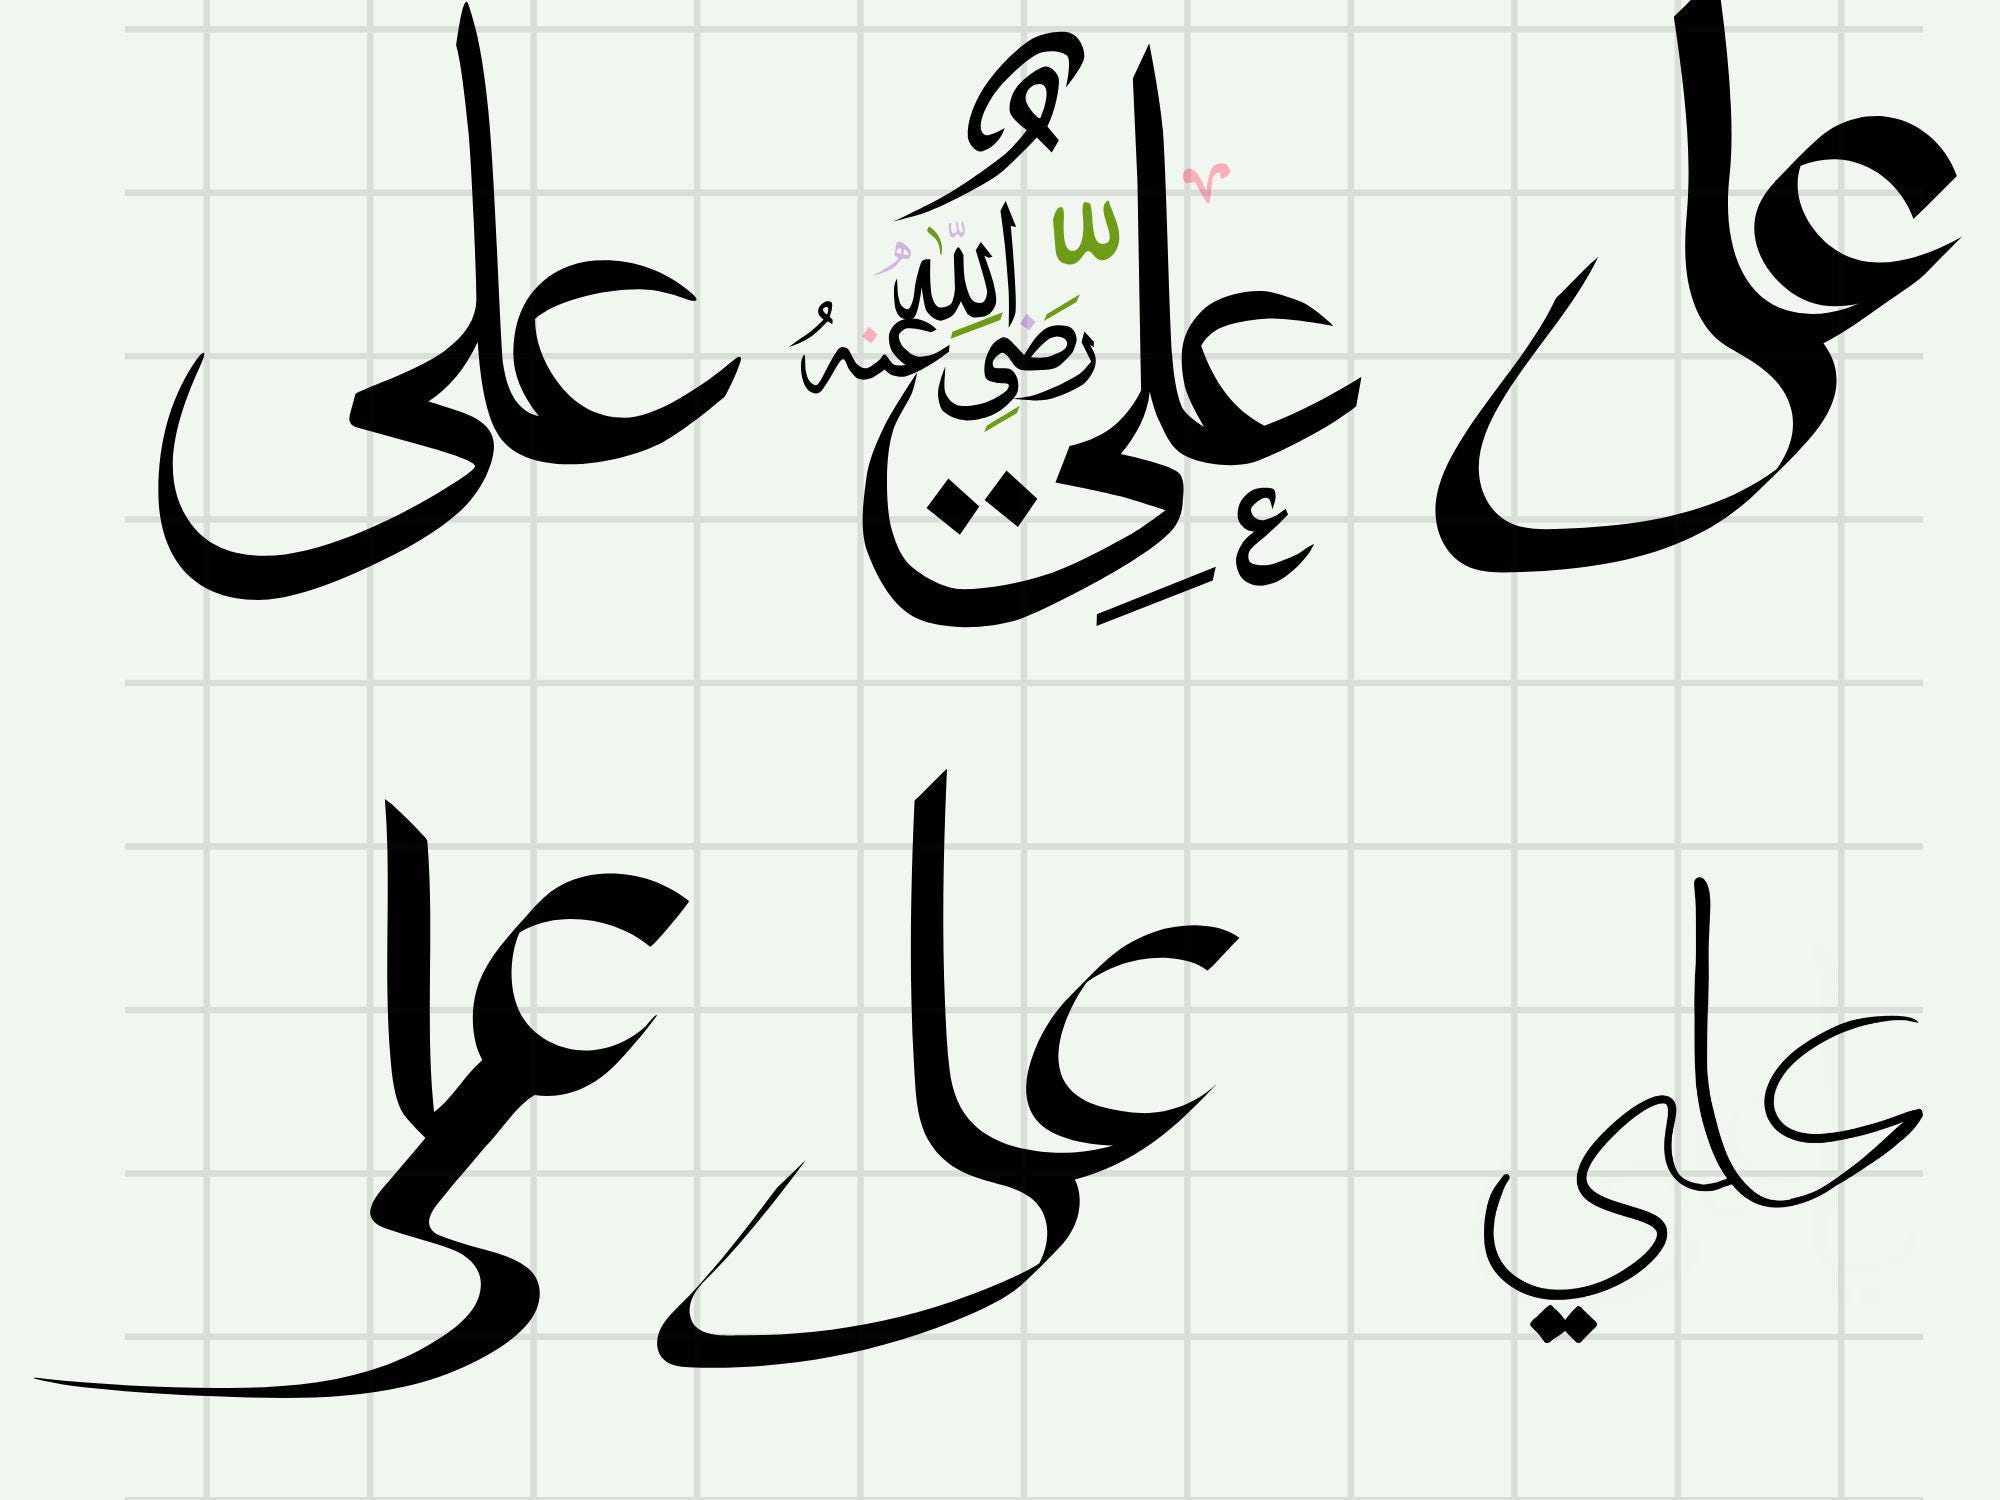 على علي رضي الله عنه على
علي على على